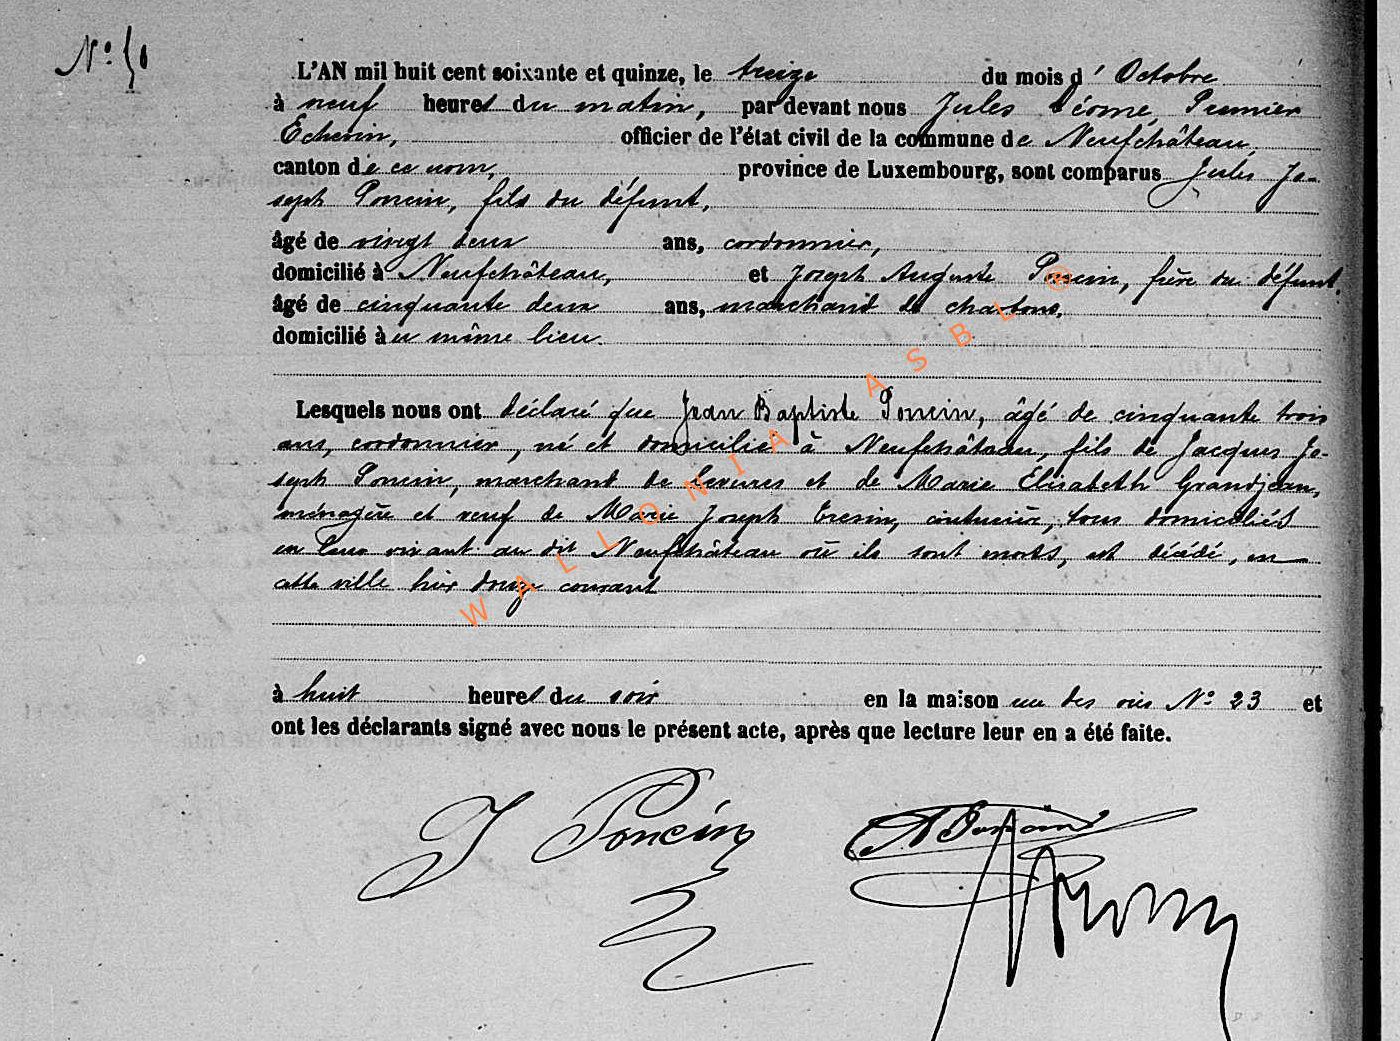 N° 50
L'AN mil huit cent soixante et quinze, le treize du mois d' Octobre
à neuf heures du matin, par devant nous Jules Premier
Echevin, officier de l'état civil de la commune de Neufchâteau,
canton de ce nom, province de Luxembourg, sont comparus Jules Jo-
seph Poncin, fils du défunt,
âgé de vingt deux ans, cordonnier,
domicilié à Neufchâteau, et Joseph Auguste Poncin, frère du défunt,
âgé de cinquante deux ans, marchand de charbons,
domicilié au même lieu.
Lesquels nous ont déclaré que Jean Baptiste Poncin, âgé de cinquante trois
ans, cordonnier, né et domicilié à Neufchâteau, fils de Jacques Jo-
seph Poncin, marchand de levures et de Marie Elisabeth Grandjean,
ménagère et veuf de Marie Joseph couturière, tous domiciliés
en leur vivant au dit Neufchâteau où ils sont morts, est décédé, en
cette ville hier douze courant
à huit heures du soir en la maison une des rues N° 23 et
ont les déclarants signé avec nous le présent acte, après que lecture leur en a été faite.
J Poncin
A Poncin
WALLONIA ASBL ©